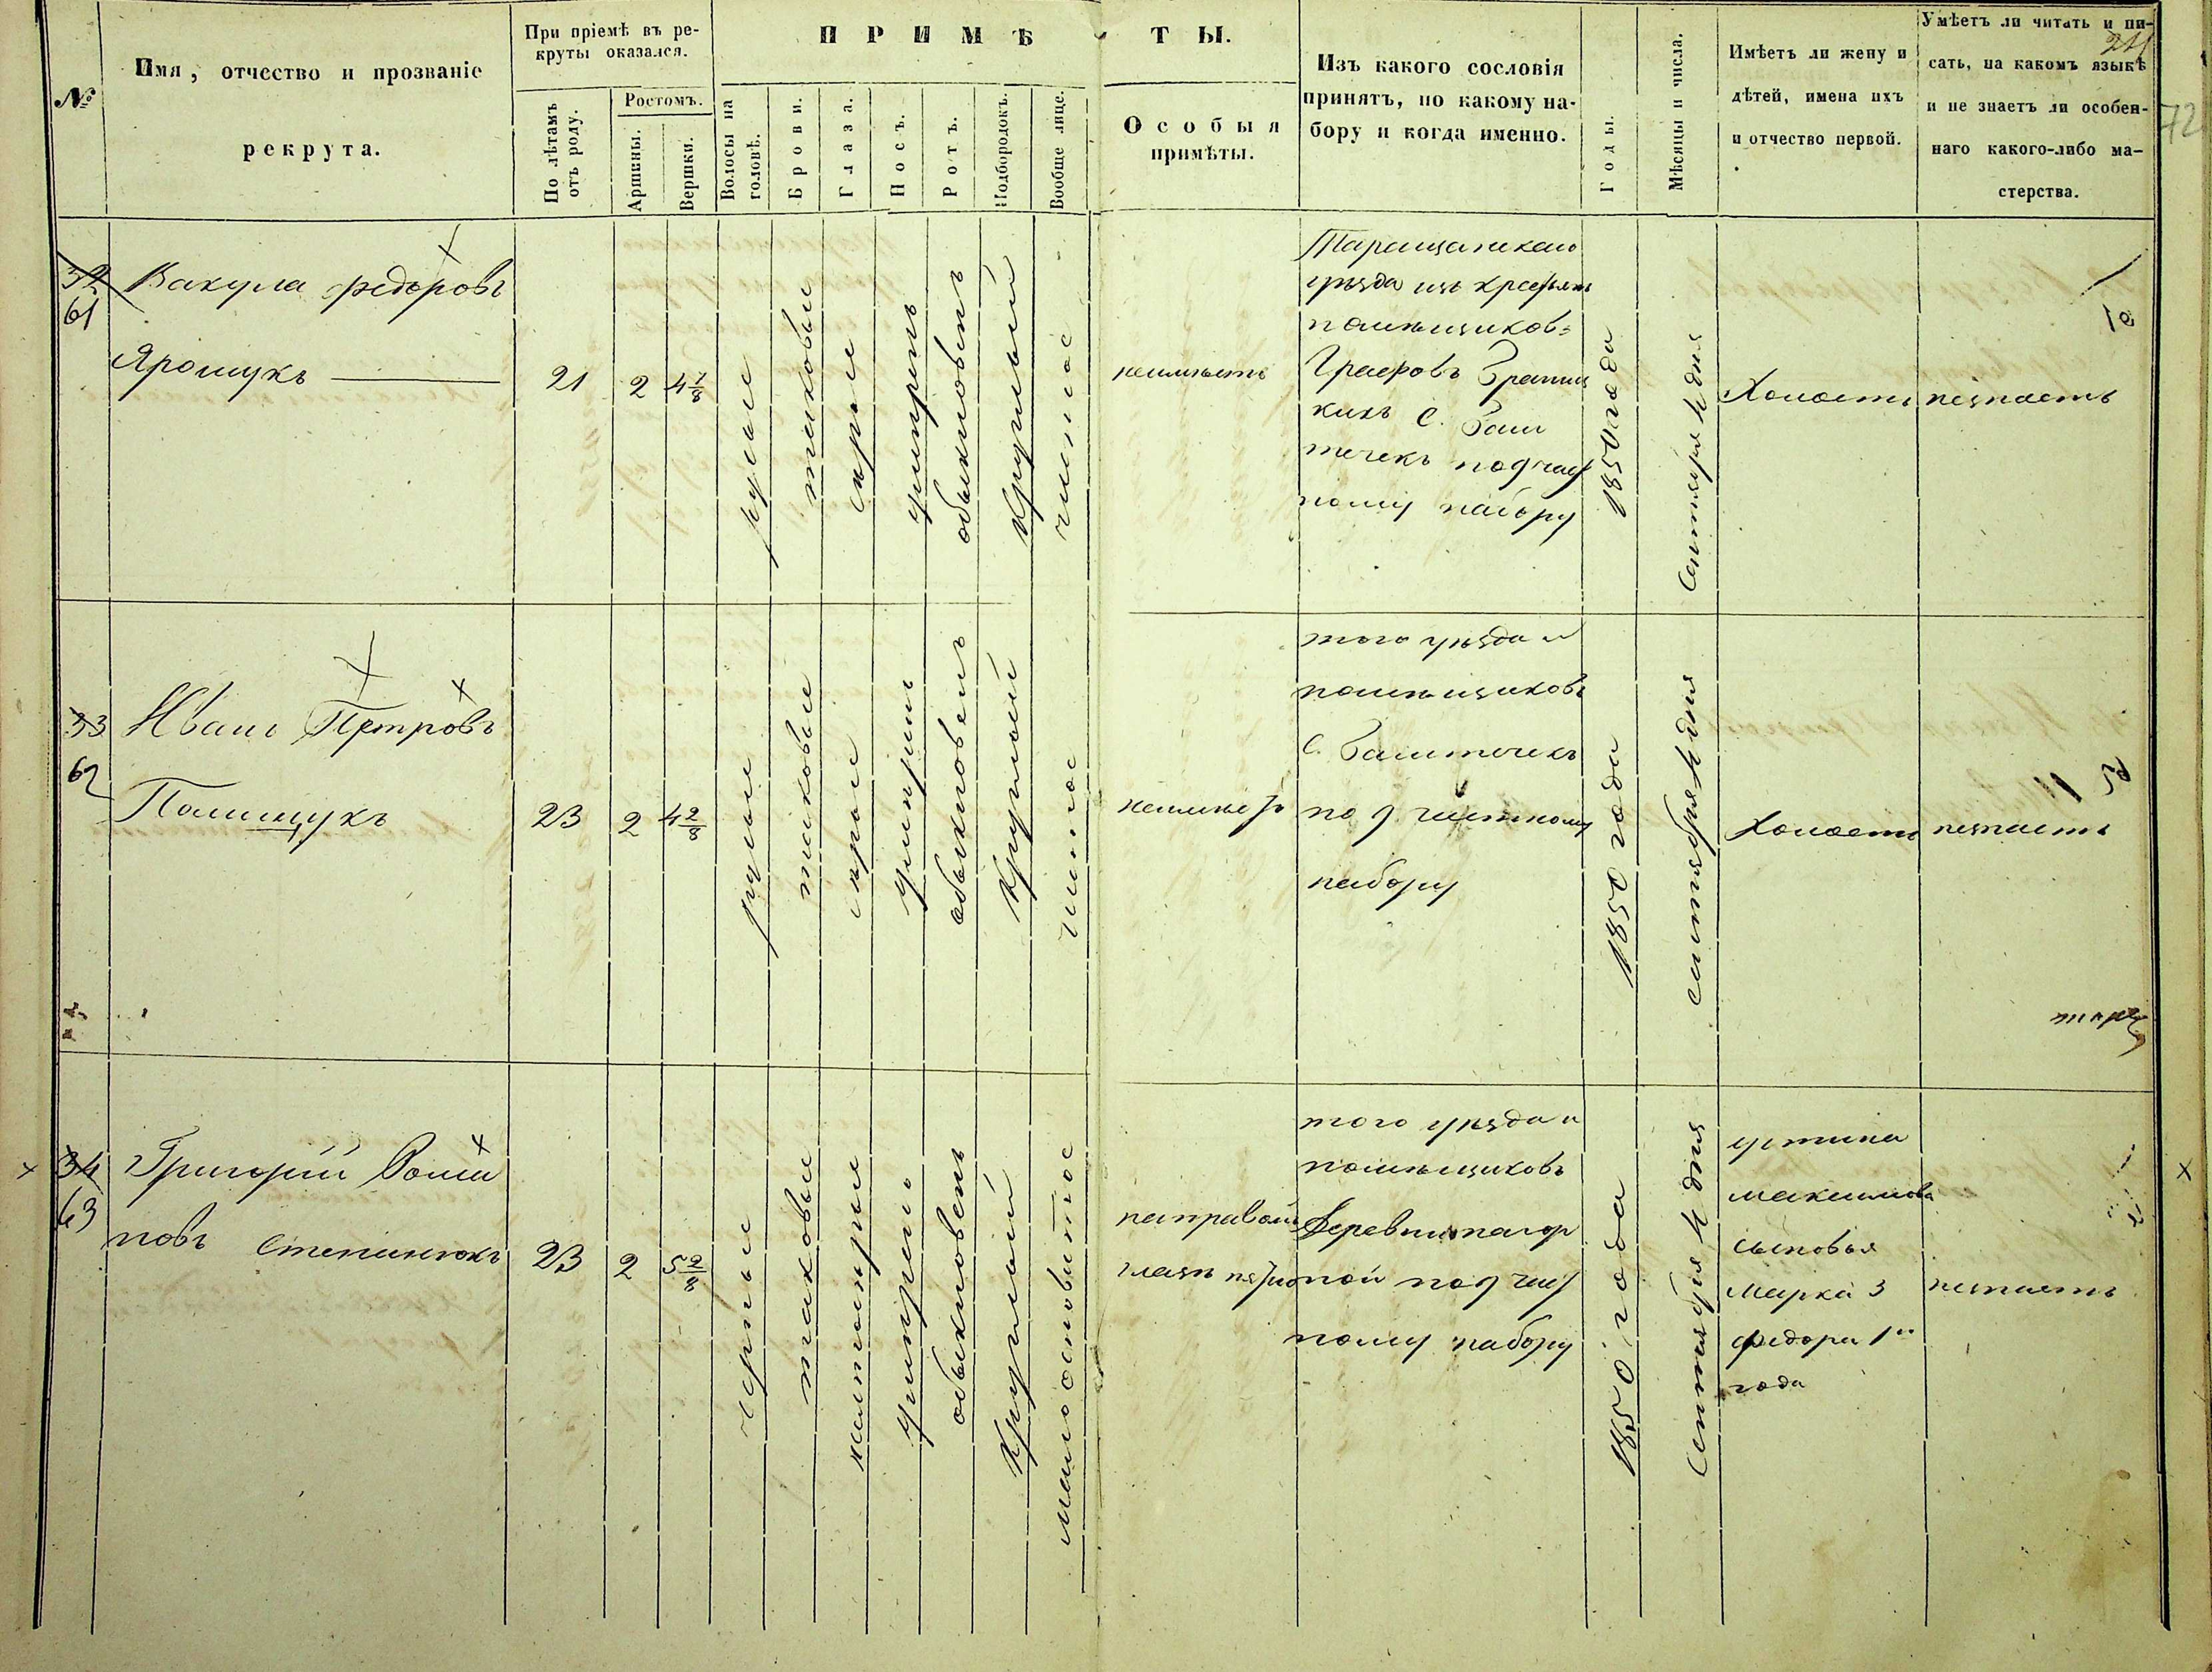 №
Имя, отчество и прозваніе
рекрута.
При пріемѣ въ ре-
круты оказался.
По лѣтамъ
отъ роду.
Ростомъ.
Аршины.
Вершки.
ПРИМѢТЫ.
Волосы на
головѣ.
Брови.
Глаза.
Носъ.
Ротъ.
Подбородокъ.
Вообще лице.
Особыя
примѣты.
Изъ какого сословія
принятъ, по какому на-
бору и когда именно.
Годы.
Мѣсяцы и числа.
Имѣетъ ли жену и
дѣтей, имена ихъ
и отчество первой.
Умѣетъ ли читать и пи-
сать, на какомъ языкѣ
и не знаетъ ли особен-
наго какого-либо ма-
стерства.
72
32
61
Вакула Федоровъ
Ярощукъ
21
2
4 1/8
русые
таковые
серые
умирень
обыкновенъ
круглый
чистое
неимѣетъ
Таращанскаго
уѣзда изъ крестьянъ
помѣщиковъ
Графовъ Браниц
кихъ С. Баш
течекъ по 9 част
ному набору
1850 года
Сентября 4 дня
Холостъ
незнаетъ
33
62
Иванъ Петровъ
Полищукъ
23
2
4 2/8
русые
таковые
серые
умирень
обыкновенъ
круглый
чистое
неимѣетъ
того уѣзда и
помѣщиковъ
С. Баштечекъ
по 9 частному
набору
1850 года
сентября 4 дня
Холостъ
незнаетъ
34
63
Григорій Рома
новъ Степанюкъ
23
2
5 2/8
черные
таковые
обыкновенъ
круглый
на правомъ
глазѣ
того уѣзда и
помѣщиковъ
Деревни
по 9 част
ному набору
1850 года
Сентября 4 дня
устина
максимова
сыновья
Марка 3
федора 1
года
незнаетъ